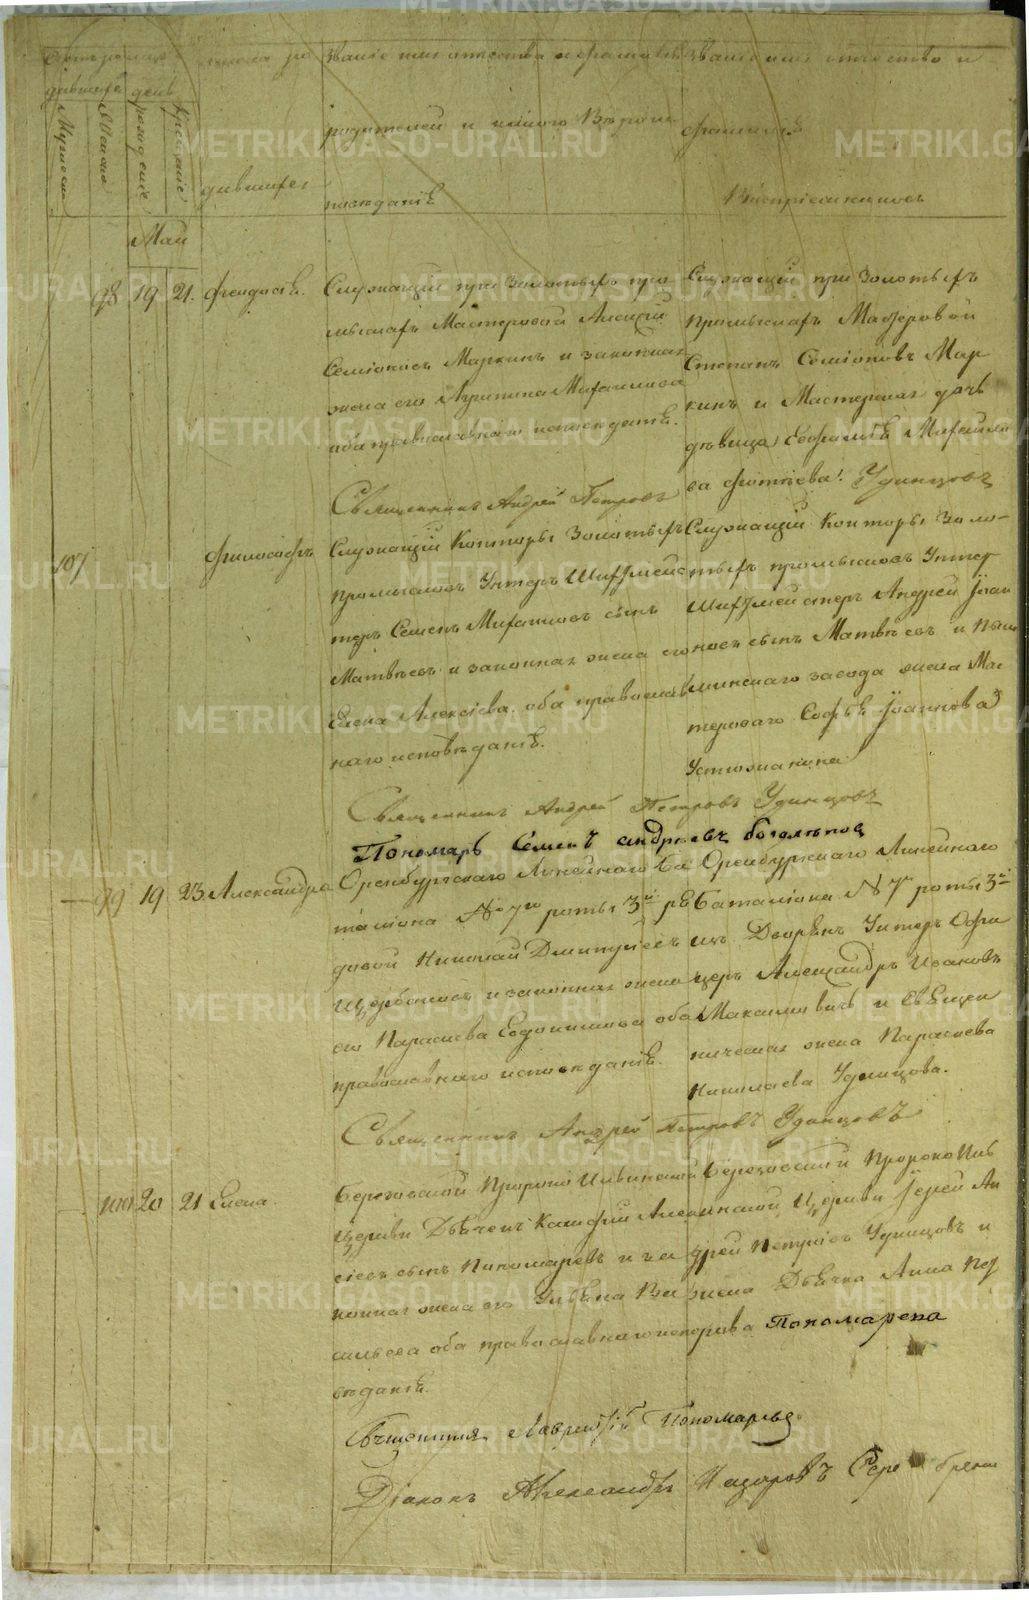 METRIKI.GASO-URAL.RU
Счетъ родив- имена ро звание имя отчество и фамилія звание имя отчество и
шихся день
Мужеска Женска рожденіе крещеніе
родителей и какого Вѣроис фамилія
дившихся
повѣданія Воспріемниковъ
Май
98 19 21. Феодосія.
Служащій при Золотыхъ про
мыслахъ Мастеровой Алексій
Семіоновъ Маркинъ и законная
жена его Агрипина Михаилова
оба православнаго исповѣданія.
Служащій при Золотыхъ
промыслахъ Мастеровой
Степанъ Семіоновъ Мар
кинъ и Мастерская дочь
дѣвица Евфимія Михаило
ва Фотіева. Удинцовъ
Священникъ Андрей Петровъ
107 Философъ
Служащій Конторы Золотыхъ
промысловъ Унтеръ Шихтмейс
теръ Семенъ Михаиловъ сынъ
Матвѣевъ и законная жена его
Елена Алексіева оба православ
наго исповѣданія.
Служащій Конторы Золо-
тыхъ промысловъ Унтер
Шихтмейстеръ Андрей Іоан
новъ сынъ Матвѣевъ и Пыш
минскаго завода жена Мас
тероваго Софія Іоаннова
Устюжанина
Священникъ Андрей Петровъ Удинцовъ
Пономарь Семенъ Андреевъ боголѣпов
99 19 23. Александра
Оренбургскаго Линейнаго Ба
таліона №7го роты 3й ря
довой Николай Дмитріевъ
Щербаковъ и законная жена
его Параскева Евдокимова оба
православнаго исповѣданія.
Оренбургскаго Линейнаго
Баталіона №7го роты 3й
изъ Дворянъ Унтеръ Офи
церъ Александръ Ивановъ
Максимовичъ и Священ
ническая жена Параскева
Николаева Удинцова.
Священникъ Андрей Петровъ Удинцовъ
100 20 21 Елена.
Березовской Пророко Ильинской
Церкви Дьячекъ Каллиф Алек
сіевъ сынъ Пономаревъ и за
конная жена его Улѣяна Ва
сильева оба православнаго испо
вѣданія.
Березовской Пророко Иль
инской Церкви Іерей Ан
дрей Петровъ Удинцовъ и
жена Дьячка Анна Пет
рова Пономарева
Священникъ Лаврентій Пономаревъ
Діаконъ Александръ Назаровъ Серебрени